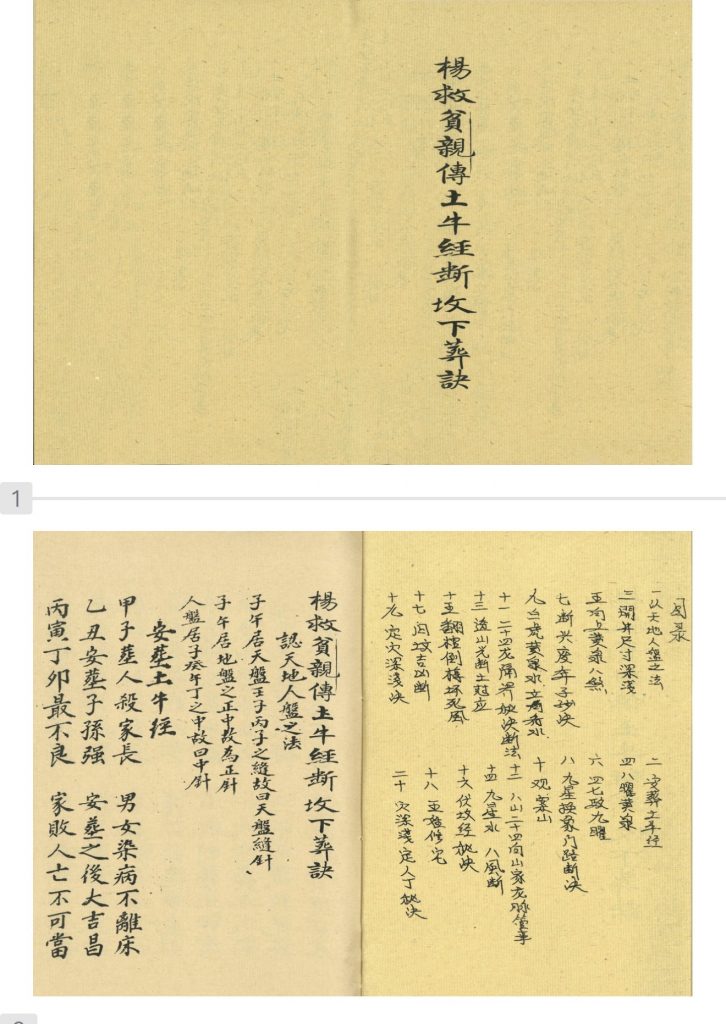 楊救貧親傳土牛經断坟下葬訣
1
目录
一 认天地人盘之法
二 安葬土牛经
三 開井尺寸深淺
四 八曜黄泉
五 向上黄泉八煞
六 四七政九曜
七 断兴废年子砂决
八 九星授象门路断决
九 白虎黄泉水
十 观案山
十一 二十四龙隔界秘决断法
十二 八山二十四向山家龙脉
十三 透山光断土冠应
十四 九星水 八風断
十五 翻棺倒椁坏死風
十六 伏坟经秘决
十七 闪坟吉凶断
十八 修宅
十九 定穴深浅决
二十 穴深淺定人丁秘决
楊救貧親傳土牛經断坟下葬訣
認天地人盤之法
子午居天盤壬子丙子之縫故曰天盤縫針
子午居地盤之正中故為正針
人盤居子癸午丁之中故曰中針
安葬土牛经
甲子葬人殺家長 男女染病不離床
乙丑安葬子孫强 安葬之後大吉昌
丙寅丁卯最不良 家敗人亡不可當